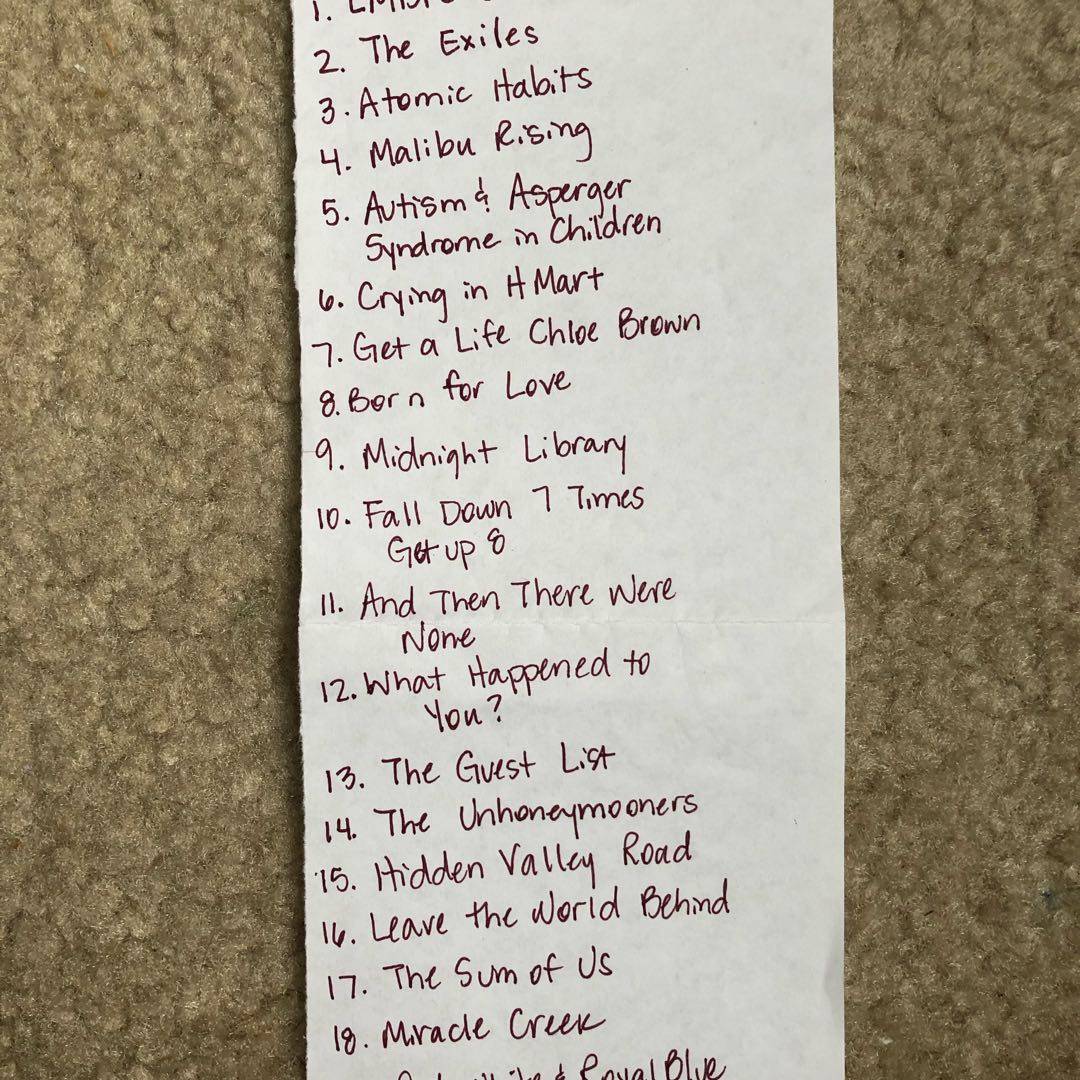 1.
2. The Exiles
3. Atomic Habits
4. Malibu Rising
5. Autism & Asperger
Syndrome in Children
6. Crying in H Mart
7. Get a Life Chloe Brown
8. Born for Love
9. Midnight Library
10. Fall Down 7 Times
Get up 8
11. And Then There Were
None
12. What Happened to
You?
13. The Guest List
14. The Unhoneymooners
15. Hidden Valley Road
16. Leave the World Behind
17. The Sum of Us
18. Miracle Creek
& Royal Blue